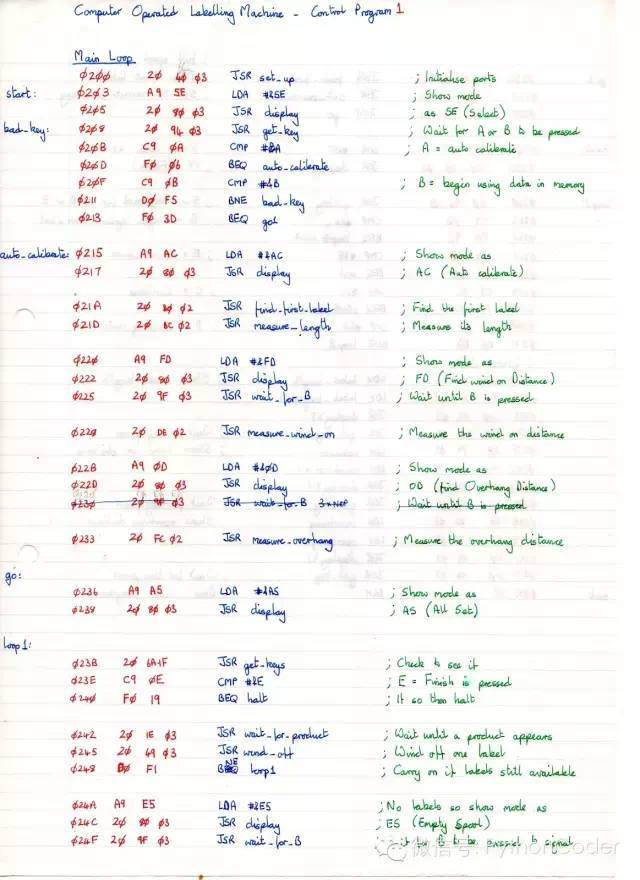 Computer Operated Labelling Machine - Control Program 1
Main Loop
0200 20 40 03 JSR set_up ; Initialise ports
start: 0203 A9 5E LDA #&5E ; Show mode
0205 20 80 03 JSR display ; as SE (Select)
bad_key: 0208 20 94 03 JSR get_key ; Wait for A or B to be pressed
020B C9 0A CMP #&A ; A = auto calibrate
020D F0 06 BEQ auto_calibrate
020F C9 0B CMP #&B ; B = begin using data in memory
0211 D0 F5 BNE bad_key
0213 F0 3D BEQ go1
auto_calibrate: 0215 A9 AC LDA #&AC ; Show mode as
0217 20 80 03 JSR display ; AC (Auto calibrate)
021A 20 02 JSR find_first_label ; Find the first label
021D 20 BC 02 JSR measure_length ; Measure its length
0220 A9 FD LDA #&FD ; Show mode as
0222 20 80 03 JSR display ; FD (Find wind on Distance)
0225 20 9F 03 JSR wait_for_B ; Wait until B is pressed
0228 20 DE 02 JSR measure_wind_on ; Measure the wind on distance
022B A9 0D LDA #&0D ; Show mode as
022D 20 80 03 JSR display ; OD (find Overhang Distance)
0230 20 9F 03 JSR wait_for_B 3xNOP ; Wait until B is pressed
0233 20 FC 02 JSR measure_overhang ; Measure the overhang distance
go:
0236 A9 A5 LDA #&A5 ; Show mode as
0238 20 80 03 JSR display ; AS (All Set)
loop1:
023B 20 6A 1F JSR get_keys ; Check to see if
023E C9 0E CMP #&E ; E = Finish is pressed
0240 F0 19 BEQ halt ; If so then halt
0242 20 1E 03 JSR wait_for_product ; Wait until a product appears
0245 20 69 03 JSR wind_off ; Wind off one label
0248 D0 F1 BNE loop1 ; Carry on if labels still available
024A A9 E5 LDA #&E5 ; No labels so show mode as
024C 20 80 03 JSR display ; ES (Empty Spool)
024F 20 9F 03 JSR wait_for_B for B to be pressed to signal
微信号: PythonCoder